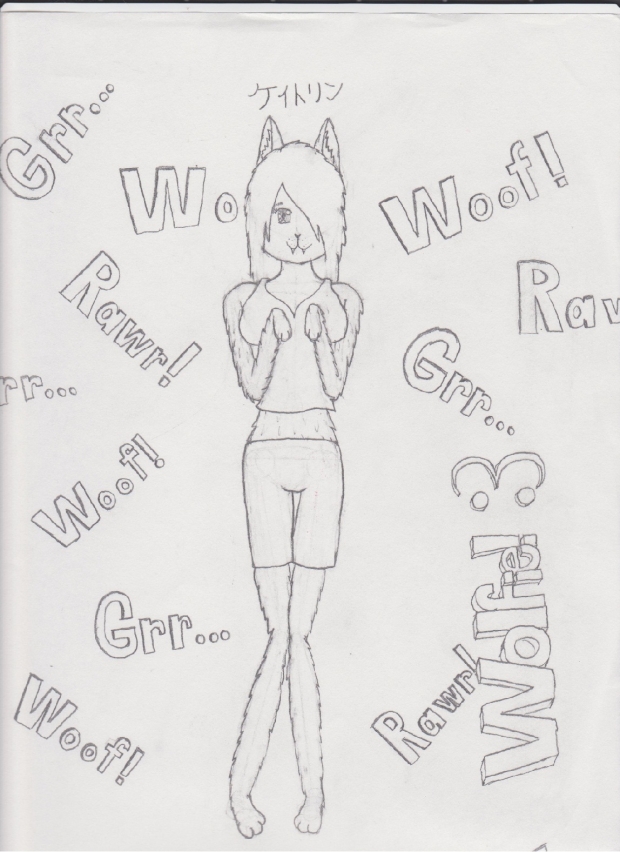 ケイトリン
Grr...
Wo
Woof!
Rawr!
Raw
rr...
Grr...
Woof!
Grr...
Rawr!
Woof!
Wolfie! :3